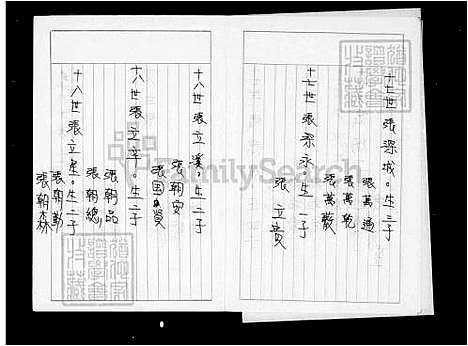 十七世張深城。生三子
張萬通
張萬乾
張萬發
十七世張深永生一子
張立貴
十八世張立溪。生二子
張朝安
張国賢
十八世張立辛。生二子
張朝品
張朝總
十八世張立星。生二子
張朝勤
張朝森
FamilySearch